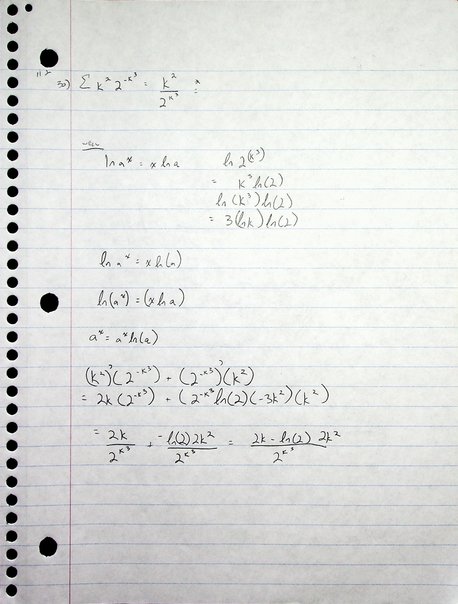 11.2
30) Σ k² 2^(-k³) = k² / 2^(k³)
ln a^x = x ln a
ln 2^(k³)
= k³ ln(2)
ln(k³) ln(2)
= 3(ln k) ln(2)
ln a^x = x ln(a)
ln(a^x) = (x ln a)
a^x = a^x ln(a)
(k²)'(2^(-k³)) + (2^(-k³))'(k²)
= 2k(2^(-k³)) + (2^(-k³) ln(2)(-3k²)(k²)
= 2k / 2^(k³) + -ln(2) 2k² / 2^(k³) = 2k - ln(2) 2k² / 2^(k³)